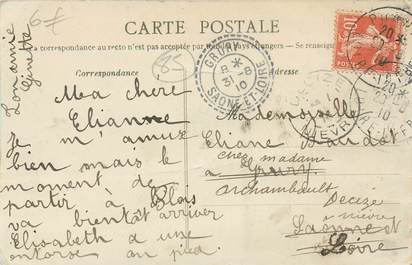 6f
CARTE POSTALE
La correspondance au recto n'est pas acceptée par tous les pays étrangers - Se renseigner
Correspondance
Adresse
85
Ma chere
Elianne
je m'amuse
bien mais le
moment de
partir à Blois
va bientôt arriver
Elisabeth a une
entorse au pied
Ginette
Mademoiselle
Eliane
chez madame
a Grury
archambault
Decize
nievre
Saone et
Loire
GRURY
8 *
31 -8
10
SAONE-ET-LOIRE
NIEVRE
10